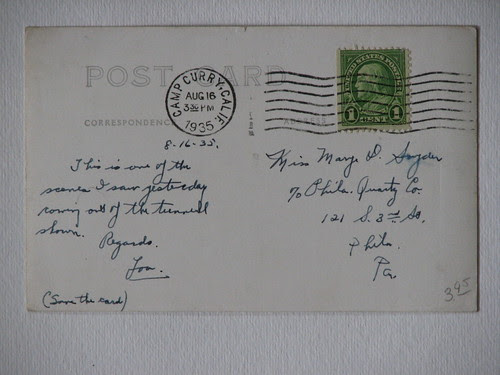 POST CARD
CAMP CURRY, CALIF
AUG 16
3 30 PM
1935
UNITED STATES POSTAGE
1 CENT 1
CORRESPONDENCE
ADDRESS
8-16-35.
This is one of the
scenes I saw yesterday
coming out of the tunnell
shown.
Regards.
(Save the card)
Miss Marge D. Snyder
c/o Phila. Quartz Co.
121 S. 3rd St.
Phila.
Pa
3.95